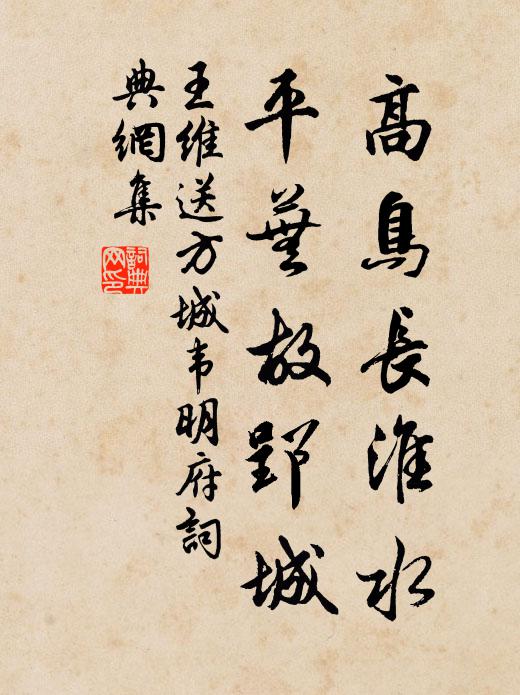 高鳥長淮水
平蕪故郢城
王維送方城韦明府詞
典網集
詞典
网印